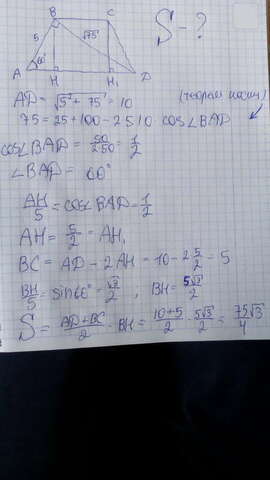 B C S - ?
5 √75
60°
A H H₁ D
AD = √5² + 75 = 10
75 = 25 + 100 - 2·5·10 cos∠BAD
cos∠BAD = 50/2·50 = 1/2
∠BAD = 60°
AH/5 = cos∠BAD = 1/2
AH = 5/2 = AH₁
BC = AD - 2AH = 10 - 2 5/2 = 5
BH/5 = sin60° = √3/2 ; BH = 5√3/2
S = AD+BC/2 · BH = 10+5/2 · 5√3/2 = 75√3/4